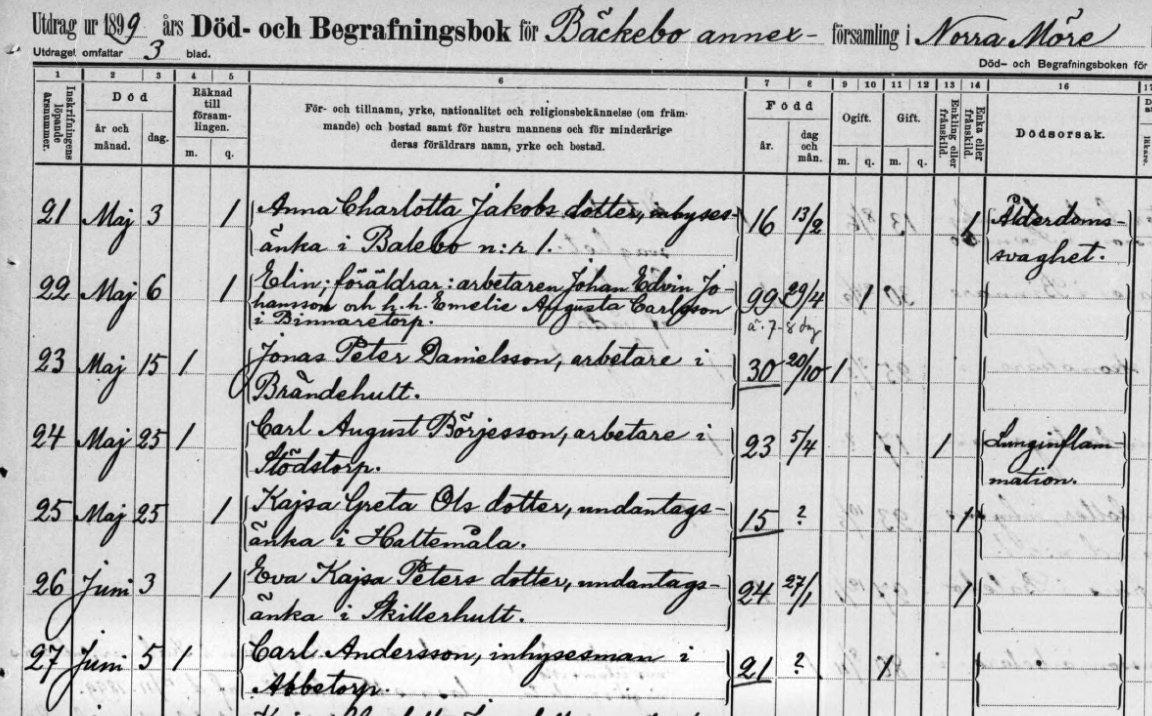 Utdrag ur 1899 års Död- och Begrafningsbok för Bäckebo annex- församling i Norra Möre
Utdraget omfattar 3 blad.
Död- och Begrafningsboken för
1 2 3 4 5 6 7 8 9 10 11 12 13 14 16 17
Inskrifningens löpande årsnummer.
Död
år och månad.
dag.
Räknad till församlingen.
m. q.
För- och tillnamn, yrke, nationalitet och religionsbekännelse (om främ-
mande) och bostad samt för hustru mannens och för minderårige
deras föräldrars namn, yrke och bostad.
Född
år.
dag och mån.
Ogift.
m. q.
Gift.
m. q.
Enkling eller frånskild.
Enka eller frånskild.
Dödsorsak.
21 Maj 3 1 Anna Charlotta Jakobs dotter, inhyses- 16 13/2 1 Ålderdoms-
änka i Balebo n:r 1. svaghet.
22 Maj 6 1 Elin; föräldrar: arbetaren Johan Edvin Jo- 99 29/4 1
hansson och h.h. Emelie Augusta Carlsson
i Binnaretorp. å. 7-8 dag
23 Maj 15 1 Jonas Peter Danielsson, arbetare i 30 20/10 1
Brändehult.
24 Maj 25 1 Carl August Börjesson, arbetare i 23 5/4 1 Lunginflam-
Stödstorp. mation.
25 Maj 25 1 Kajsa Greta Ols dotter, undantags- 15 ? 1
änka i Hattemåla.
26 Juni 3 1 Eva Kajsa Peters dotter, undantags- 24 27/1 1
änka i Skillerhult.
27 Juni 5 1 Carl Andersson, inhysesman i 21 ? 1
Abbetorp.